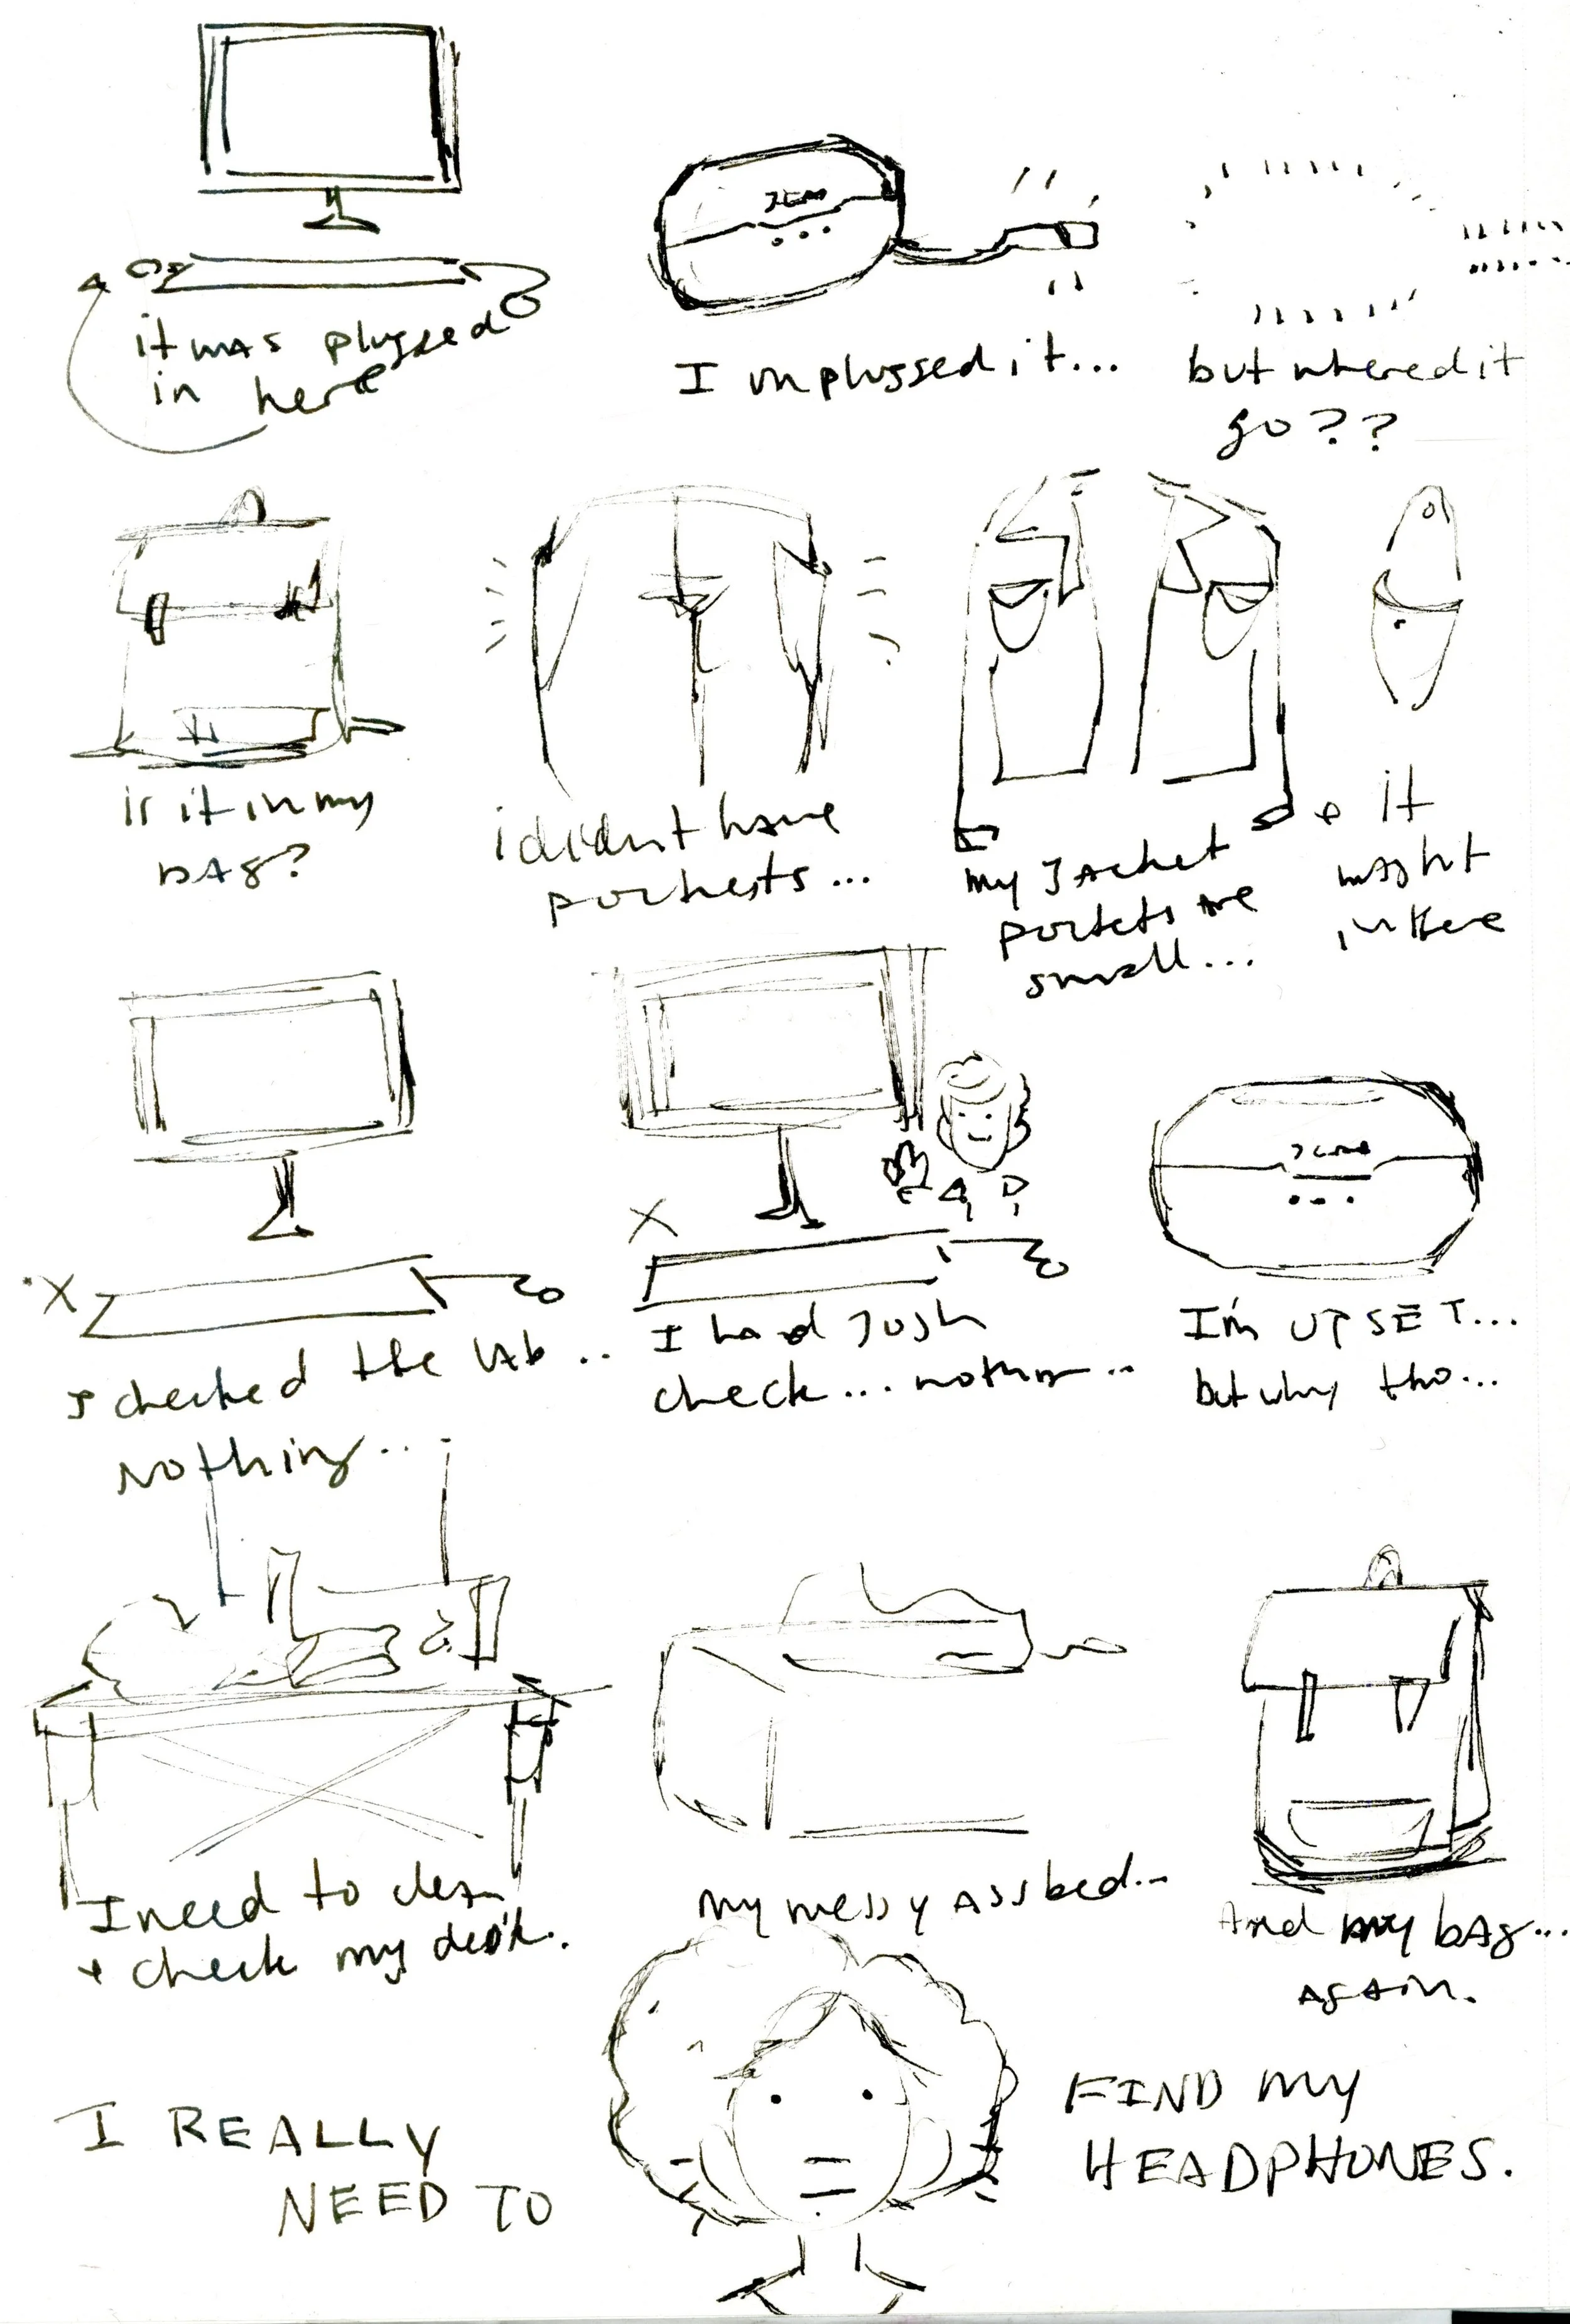 it was plugged
in here
I unplugged it...
but where'd it
go??
is it in my
bag?
i didn't have
pockests...
my Jacket
pockets are
small...
+ it
might
in here
I checked the lab...
Nothing...
I had Josh
check... nothin...
I'm UPSET...
but why tho...
I need to clean
+ check my desk.
my messy ass bed...
And my bag...
again.
I REALLY
NEED TO
FIND my
HEADPHONES.